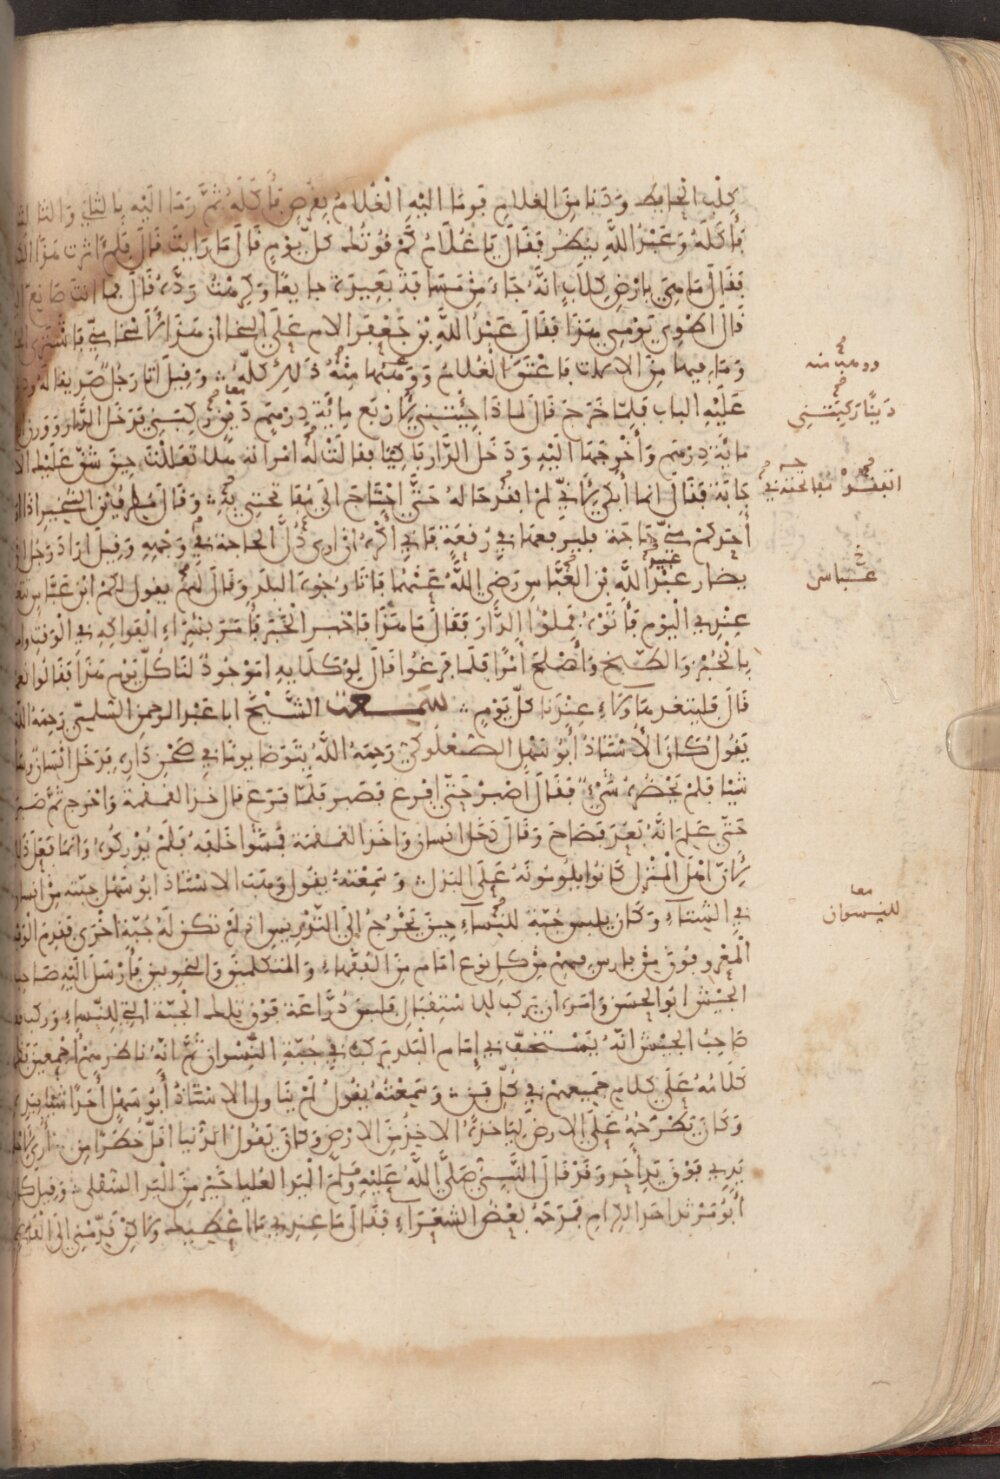 كلب الحايط ودنا من الغلام فرما اليه الغلام بقرص فأكله ثم رما اليه بالثاني والثالث
فأكله وعبد الله ينظر فقال يا غلام كم قوتك كل يوم قال ما رايت قال فلم اثرت هذا الكلب
فقال ما هي بارض كلاب انه جاء من مسافة بعيدة جايعا وكرهت رده قال فما انت صانع
قال اطوي يومي هذا فقال عبد الله بن جعفر الام على السخا ان هذا لأسخا مني فاشترى
وما فيها من الالات فاعتق الغلام ووهبها منه ذلك كله وقيل اتا رجل صديقا له
عليه الباب فلما خرج قال لماذا جئتني قال اربع مائة درهم دين ركبتني فدخل الدار ووزن
مائة درهم وأخرجها اليه ودخل الدار باكيا فقالت له امراته هلا تعللت حين شق عليك
جابة فقال انما أبكي لأني لم اتفقد حاله حتى احتاج الى مفاتحتي به وقال مطرف بن الشخير اذا
أحدكم مني حاجة فليرفعها في رقعة فاني أكره ان ارى ذل الحاجة في وجهه وقيل اراد رجل ان
يضار عبد الله بن العباس رضي الله عنهما فاتا وجوه البلد وقال لهم يقول لكم ابن عباس
عندي اليوم فأتوه فملوا الدار فقال ما هذا فاخبر الخبر فأمر بشراء الفواكه في الوقت
بالخبز والطبيخ وأصلح أمرا فلما فرغوا قال لوكلايه اموجود لنا كل يوم هذا فقالوا نعم
قال فليتغد هاؤلاء عندنا كل يوم سمعت الشيخ ابا عبد الرحمن السلمي رحمه الله
يقول كان الأستاذ أبو سهل الصعلوكي رحمه الله يتوضا يوما في صحن داره فدخل انسان
شيئا فلم يحضره شيء فقال أصبر حتى افرغ فصبر فلما فرغ قال خذ القمقمة واخرج ثم صبر
حتى علم انه بعد فصاح وقال دخل انسان واخذ القمقمة فمشوا خلفه فلم يدركوه وانما فعل
لأن أهل المنزل كانوا يلومونه على البذل وسمعته يقول وهب الاستاذ ابو سهل جبته من انسان
في الشتاء وكان يلبس جبة للنساء حين يخرج إلى التدريس اذ لم تكن له جبة أخرى فقدم الوفد
المعروفون من فارس فيهم من كل نوع امام من الفقهاء والمتكلمين والنحويين فأرسل اليه صاحب
الجيش ابو الحسن وامره ان يركب للاستقبال فلبس دراعة فوق تلك الجبة التي للنساء وركب
صاحب الجيش انه يستخف بي امام البلد يركب في جبة النسوان ثم انه ناظرهم أجمعين
كلامه على كلام جميعهم في كل فن وسمعته يقول لم يناول الاستاذ أبو سهل أحدا شيئا بيده
وكان يطرحه على الارض لياخذه الاخذ من الارض وكان يقول الدنيا اقل خطرا من أن أرى
يدي فوق يد أحد وقد قال النبي صلى الله عليه وسلم اليد العليا خير من اليد السفلى وقيل كان
أبو مرثد احد الكرام فمدحه بعض الشعراء فقال ما عندي ما اعطيك ولاكن قدمني الى القاضي
دين ركبتني
عباس
معا
للنسوان